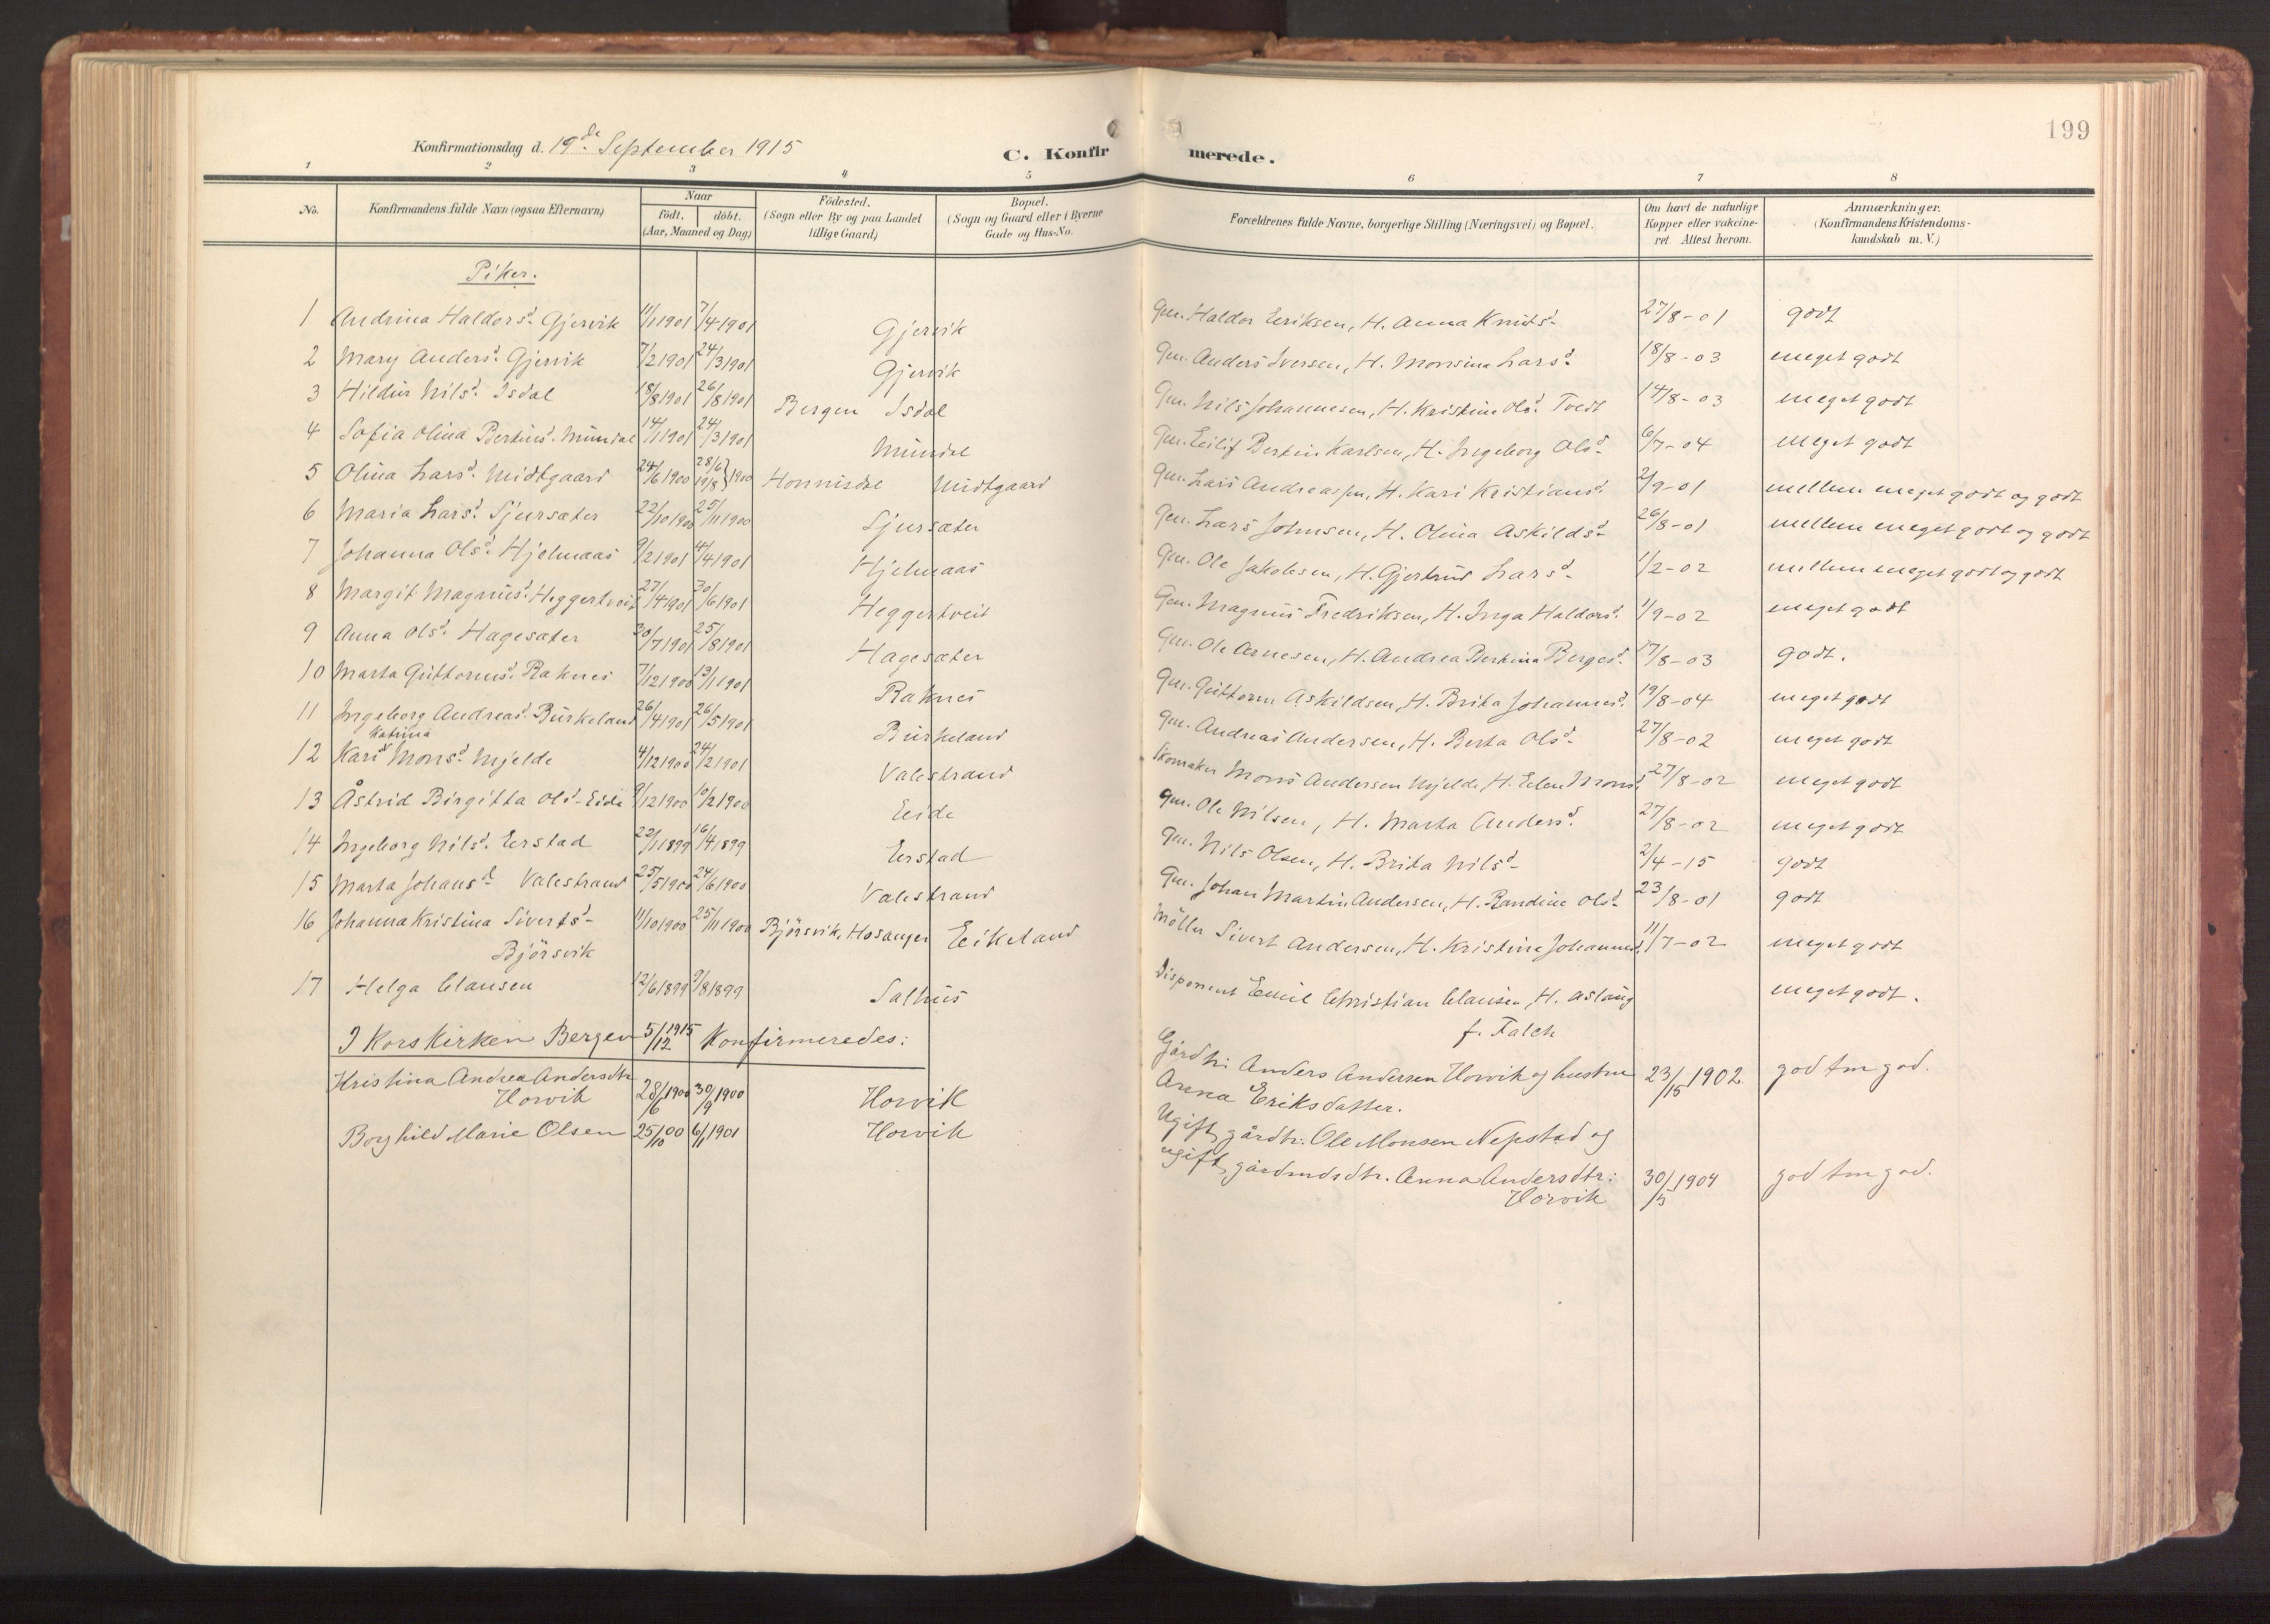 199
Konfirmationsdag d. 19de September 1915
C. Konfirmerede.
1 2 3 4 5 6 7 8
No.
Konfirmandens fulde Navn (ogsaa Efternavn)
Naar
født. döbt.
(Aar, Maaned og Dag)
Födested.
(Sogn eller By og paa Landet
tillige Gaard)
Bopæl.
(Sogn og Gaard eller i Byerne
Gade og Hus-No.
Forældrenes fulde Navne, borgerlige Stilling (Næringsvei) og Bopæl.
Om havt de naturlige
Kopper eller vakcine-
ret Attest herom.
Anmærkninger.
(Konfirmandens Kristendoms-
kundskab m. V.)
Piker.
1 Andrina Haldorsd. Gjervik 11/1 1901 7/4 1901 Gjervik Gm. Haldor Eriksen, H. Anna Knutsd. 27/8-01 godt
2 Mary Andersd. Gjervik 7/2 1901 24/3 1901 Gjervik Gm. Anders Iversen, H. Monsina Larsd. 18/8-03 meget godt
3 Hildur Nilsd. Isdal 18/8 1901 26/8 1901 Bergen Isdal Gm. Nils Johannesen, H. Kristine Olsd. Tvedt 14/8-03 meget godt
4 Sofia Olina Bertinsd. Mundal 14/1 1901 24/3 1901 Mundal Gm. Eilif Bertin Karlsen, H. Ingeborg Olsd. 6/7-04 meget godt
5 Olina Larsd. Midtgaard 24/6 1900 28/6 19/8 } 1900 Honnisdal Midtgaard Gm. Lars Andreassen, H. Kari Kristiansd. 2/9-01 mellem meget godt og godt
6 Maria Larsd. Sjursæter 22/10 1900 25/11 1900 Sjursæter Gm. Lars Johnsen, H. Olina Askildsd. 26/8-01 mellem meget godt og godt
7 Johanna Olsd. Hjelmaas 9/2 1901 4/4 1901 Hjelmaas Gm. Ole Jakobsen, H. Gjertrud Larsd. 1/2-02 mellem meget godt og godt
8 Margit Magnusd. Heggertveit 27/4 1901 30/6 1901 Heggertveit Gm. Magnus Fredriksen, H. Inga Haldorsd. 1/9-02 meget godt
9 Anna Olsd. Hagesæter 30/7 1901 25/8 1901 Hagesæter Gm. Ole Arnesen, H. Andrea Bertina Bergesd. 17/8-03 godt.
10 Marta Guttormsd. Raknes 7/12 1900 13/1 1901 Raknes Gm. Guttorm Askildsen, H. Brita Johannesd. 19/8-04 meget godt
11 Ingeborg Andreasd. Burkeland 26/4 1901 26/5 1901 Burkeland Gm. Andreas Andersen, H. Berta Olsd. 27/8-02 meget godt
Katrina
12 Kari Monsd. Mjelde 4/12 1900 24/2 1901 Valestrand Skomaker Mons Andersen Mjelde, H. Elen Monsd. 27/8-02 meget godt
13 Åstrid Birgitta Olsd. Eide 9/12 1900 10/2 1900 Eide Gm. Ole Nilsen, H. Marta Andersd. 27/8-02 meget godt
14 Ingeborg Nilsd. Eerstad 22/1 1899 16/4 1899 Eerstad Gm. Nils Olsen, H. Brita Nilsd. 2/4-15 godt
15 Marta Johansd. Valestrand 25/5 1900 24/6 1900 Valestrand Gm. Johan Martin Andersen, H. Randine Olsd. 23/8-01 godt
16 Johanna Kristina Sivertsd. 11/10 1900 25/11 1900 Bjørsvik, Hosanger Eikeland Möller Sivert Andersen, H. Kristina Johannesd. 11/7-02 meget godt
Björsvik
17 Helga Clausen 12/6 1899 9/8 1899 Salhus Disponent Emil Christian Clausen, H. Aslaug meget godt.
f. Falch
I Korskirken Bergen 5/12 1915 Konfirmeredes:
Kristina Andrea Andersdtr. Gårdbr. Anders Andersen Horvik og hustru
Horvik 28/6 1900 30/9 1900 Horvik Anna Eriksdatter. 23/15 1902. god tm god.
Borghild Marie Olsen 25/10 00 6/1 1901 Horvik Ugift gårdbr. Ole Monsen Nepstad og
ugift gårdmdsdtr. Anna Andersdtr: 30/5 1904 god tm god.
Horvik